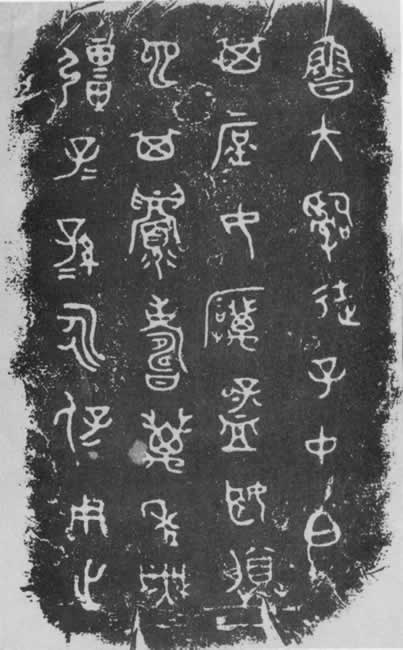 魯大嗣徒子中白
其庶女厲孟姬媵
它其眉壽萬年無
疆子=孫=永保用之